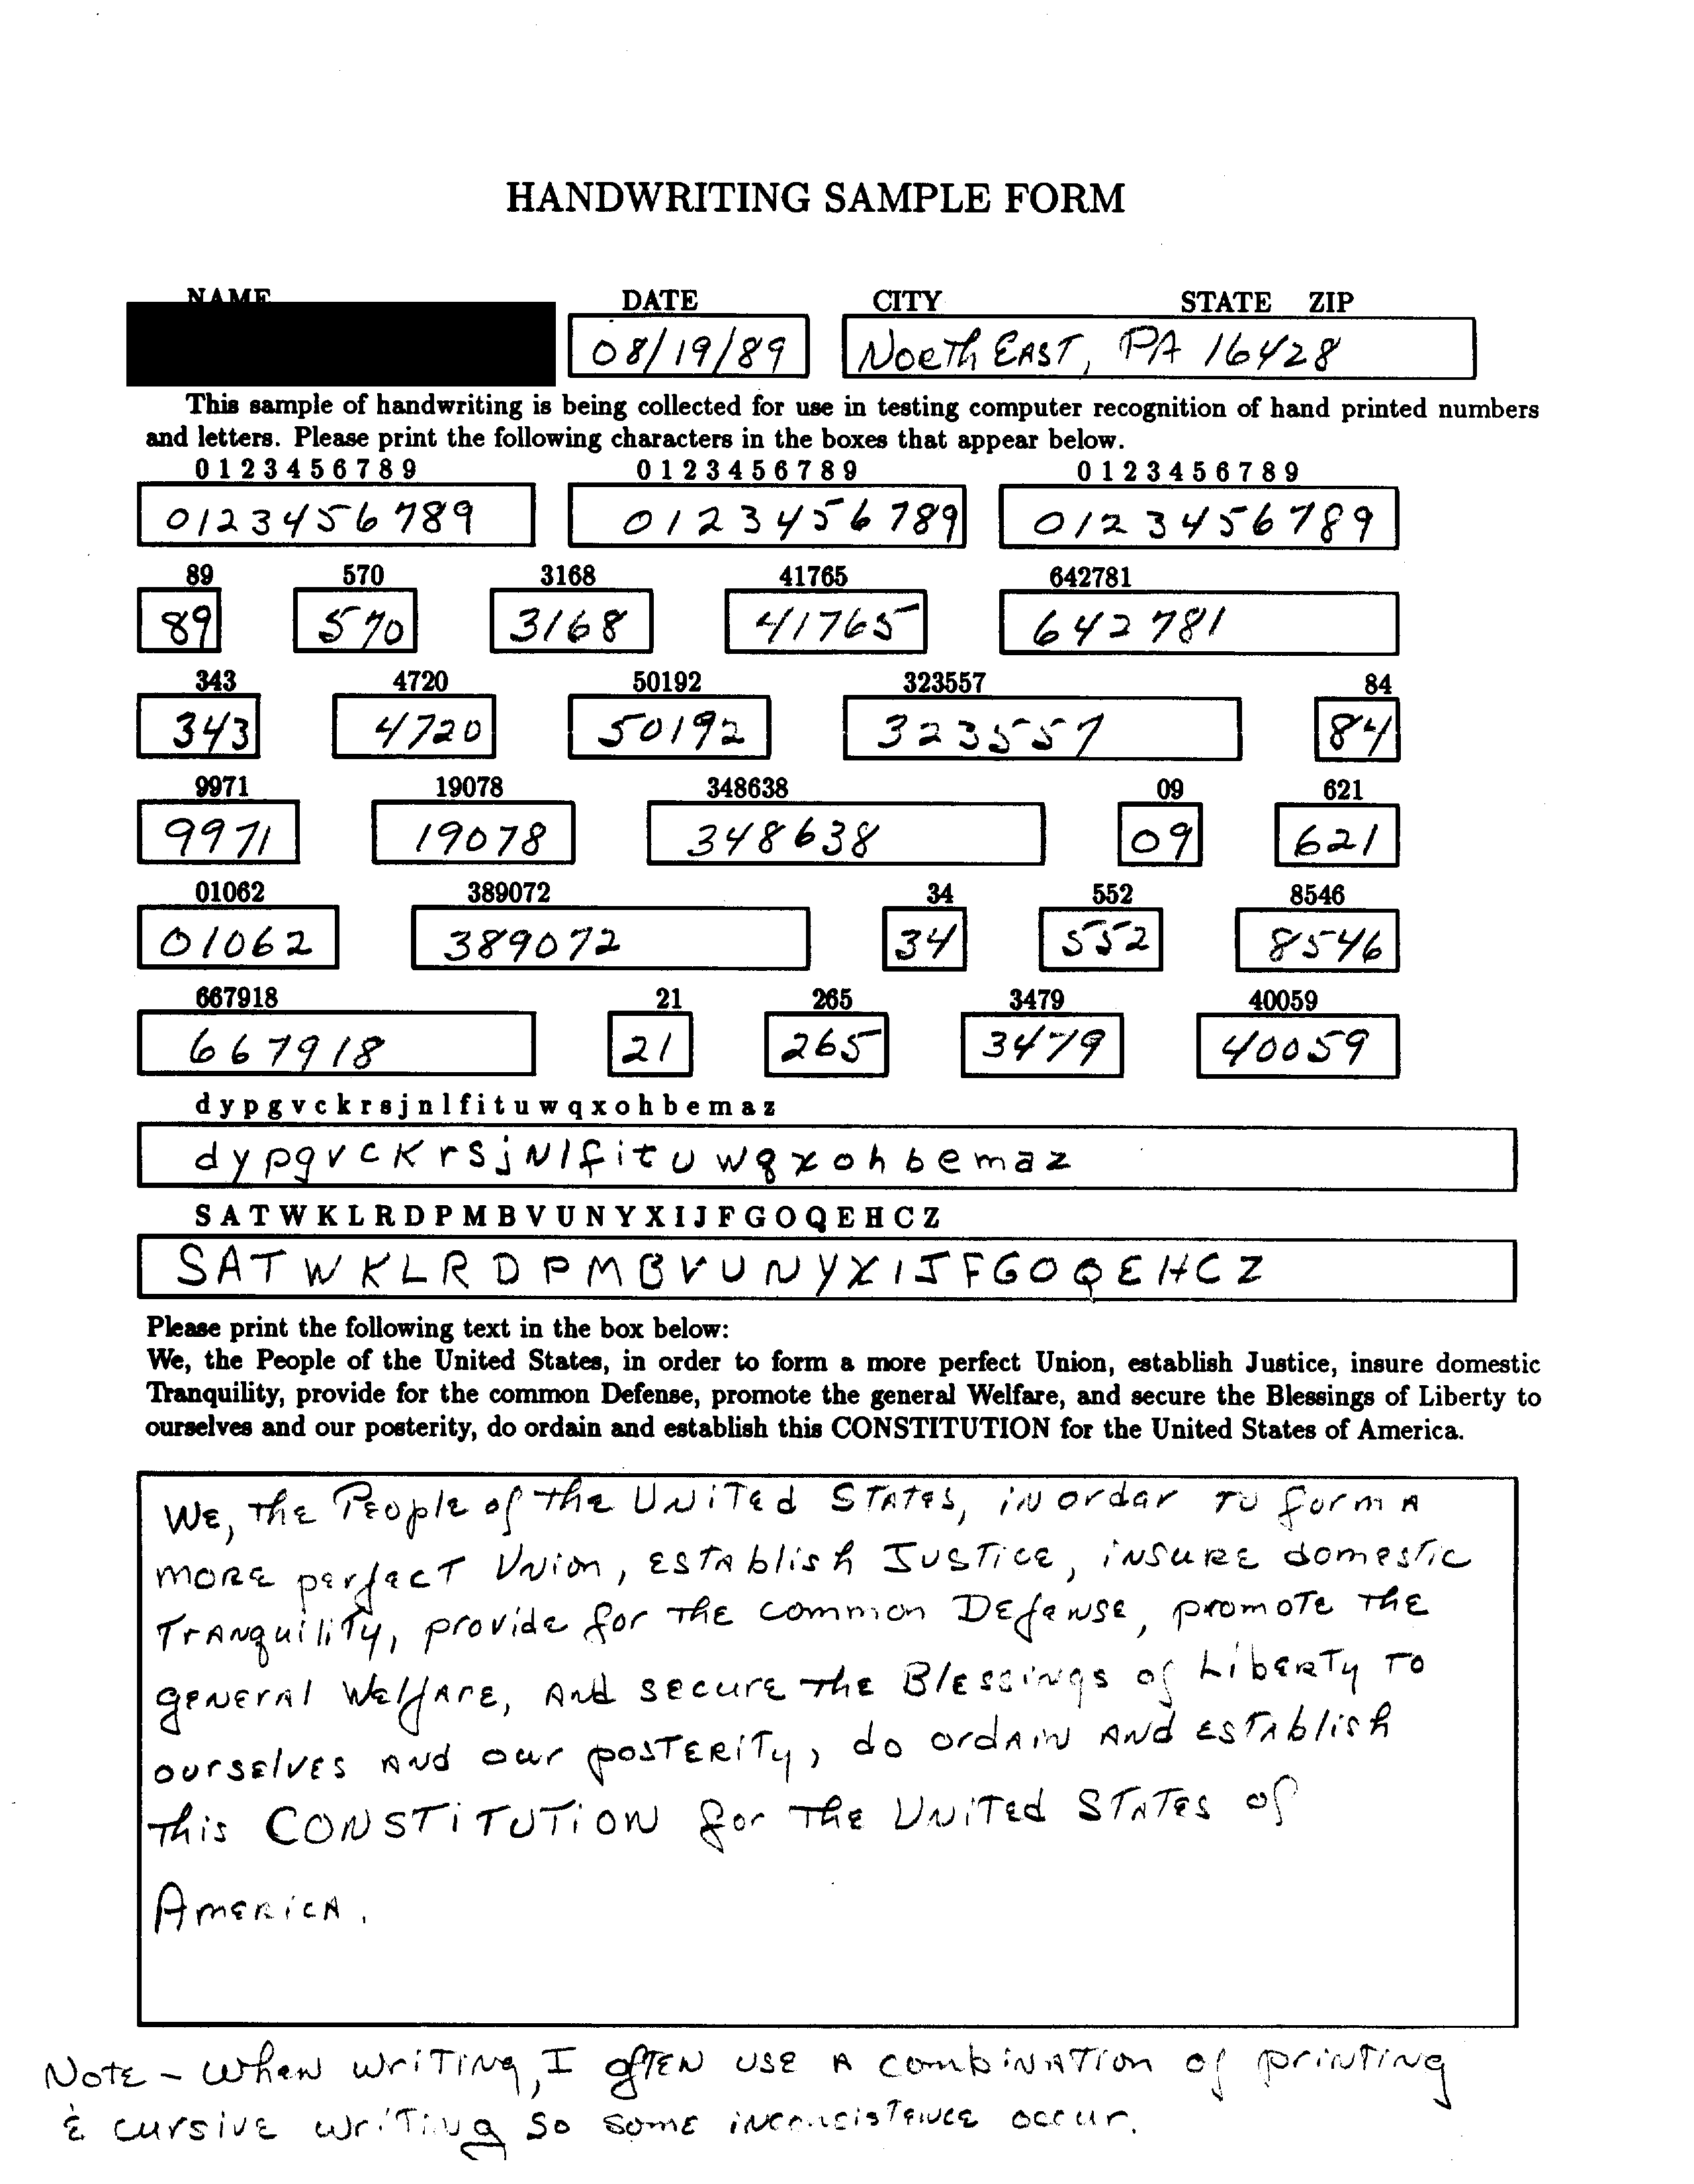 HANDWRITING SAMPLE FORM
NAME DATE CITY STATE ZIP
08/19/89 North EAST, PA 16428
This sample of handwriting is being collected for use in testing computer recognition of hand printed numbers
and letters. Please print the following characters in the boxes that appear below.
0 1 2 3 4 5 6 7 8 9 0 1 2 3 4 5 6 7 8 9 0 1 2 3 4 5 6 7 8 9
0123456789 0123456789 0123456789
89 570 3168 41765 642781
89 570 3168 41765 642781
343 4720 50192 323557 84
343 4720 50192 323557 84
9971 19078 348638 09 621
9971 19078 348638 09 621
01062 389072 34 552 8546
01062 389072 34 552 8546
667918 21 265 3479 40059
667918 21 265 3479 40059
d y p g v c k r s j n l f i t u w q x o h b e m a z
d y p g v c K r s j N l f i t u w q x o h b e m a z
S A T W K L R D P M B V U N Y X I J F G O Q E H C Z
S A T W K L R D P M B V U N Y X I J F G O Q E H C Z
Please print the following text in the box below:
We, the People of the United States, in order to form a more perfect Union, establish Justice, insure domestic
Tranquility, provide for the common Defense, promote the general Welfare, and secure the Blessings of Liberty to
ourselves and our posterity, do ordain and establish this CONSTITUTION for the United States of America.
We, the People of the United States, in order to form a
more perfect Union, establish Justice, insure domestic
Tranquility, provide for the common Defense, promote the
general Welfare, and secure the Blessings of Liberty to
ourselves and our posterity, do ordain and establish
this CONSTITUTION for the United States of
America.
Note - When writing, I often use a combination of printing
& cursive writing so some inconsistence occur.